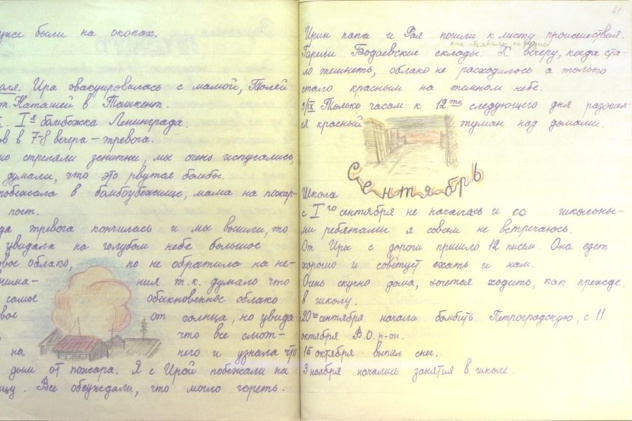 были на окопах.
Ира эвакуировалась с мамой, Тюлей
Наташей в Ташкент.
Iая бомбёжка Ленинграда.
в 7-8 вечера – тревога.
стреляли зенитки, мы очень испугались,
думали, что это рвутся бомбы.
побежала в бомбоубежище, мама на пожар-
пост.
тревога кончилась и мы вышли, то
увидали на голубом небе большое
облако, но не обратила на не-
ния т.к. думало что
самое обыкновенное облако
от солнца, но увида
что все смот-
на него и узнала что
дым от пожара. Я с Ирой побежали на
Все обсуждали, что могло гореть.
61
Ирин папа и Рая пошли к месту происшествия.
Горели Бодаевские склады. К вечеру, когда ста-
ло темнеть, облако не расходилось а только
стало красным на темном небе.
9/IX Только часам к 12ти следующего дня разошел-
я красный туман над домами.
Сентябрь
Школа
с Iго сентября не началась и со школьны-
ми ребятами я совсем не встречаюсь.
От Иры с дороги пришло 12 писем. Она едет
хорошо и советует ехать и нам.
Очень скучно дома, хочется ходить, как прежде,
в школу.
20го сентября начали бомбить Петроградскую, с 11
октября В.О. р-он.
15 октября выпал снег.
3 ноября начались занятия в школе.